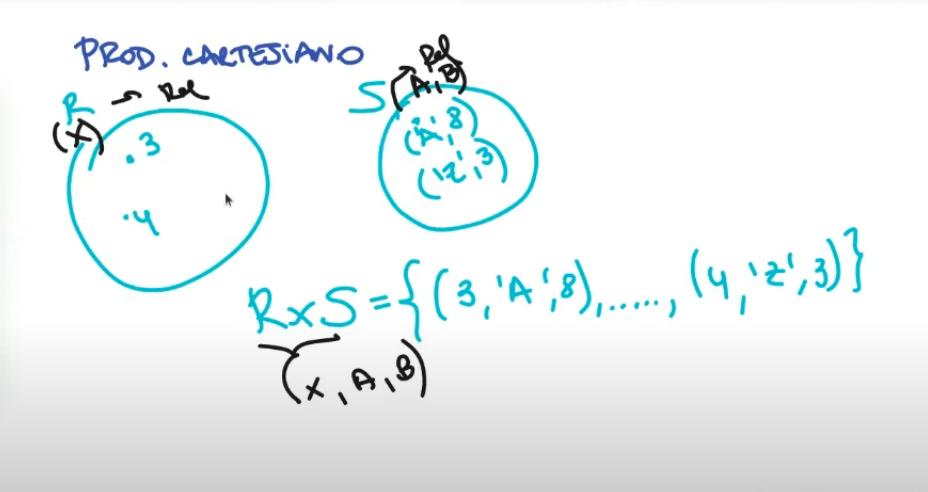 PROD. CARTESIANO
R → Rel
(X)
. 3
. 4
Rel
S (A, B)
('A', 8)
('Z', 3)
RxS = {(3, 'A', 8), ....., (4, 'Z', 3)}
(X, A, B)